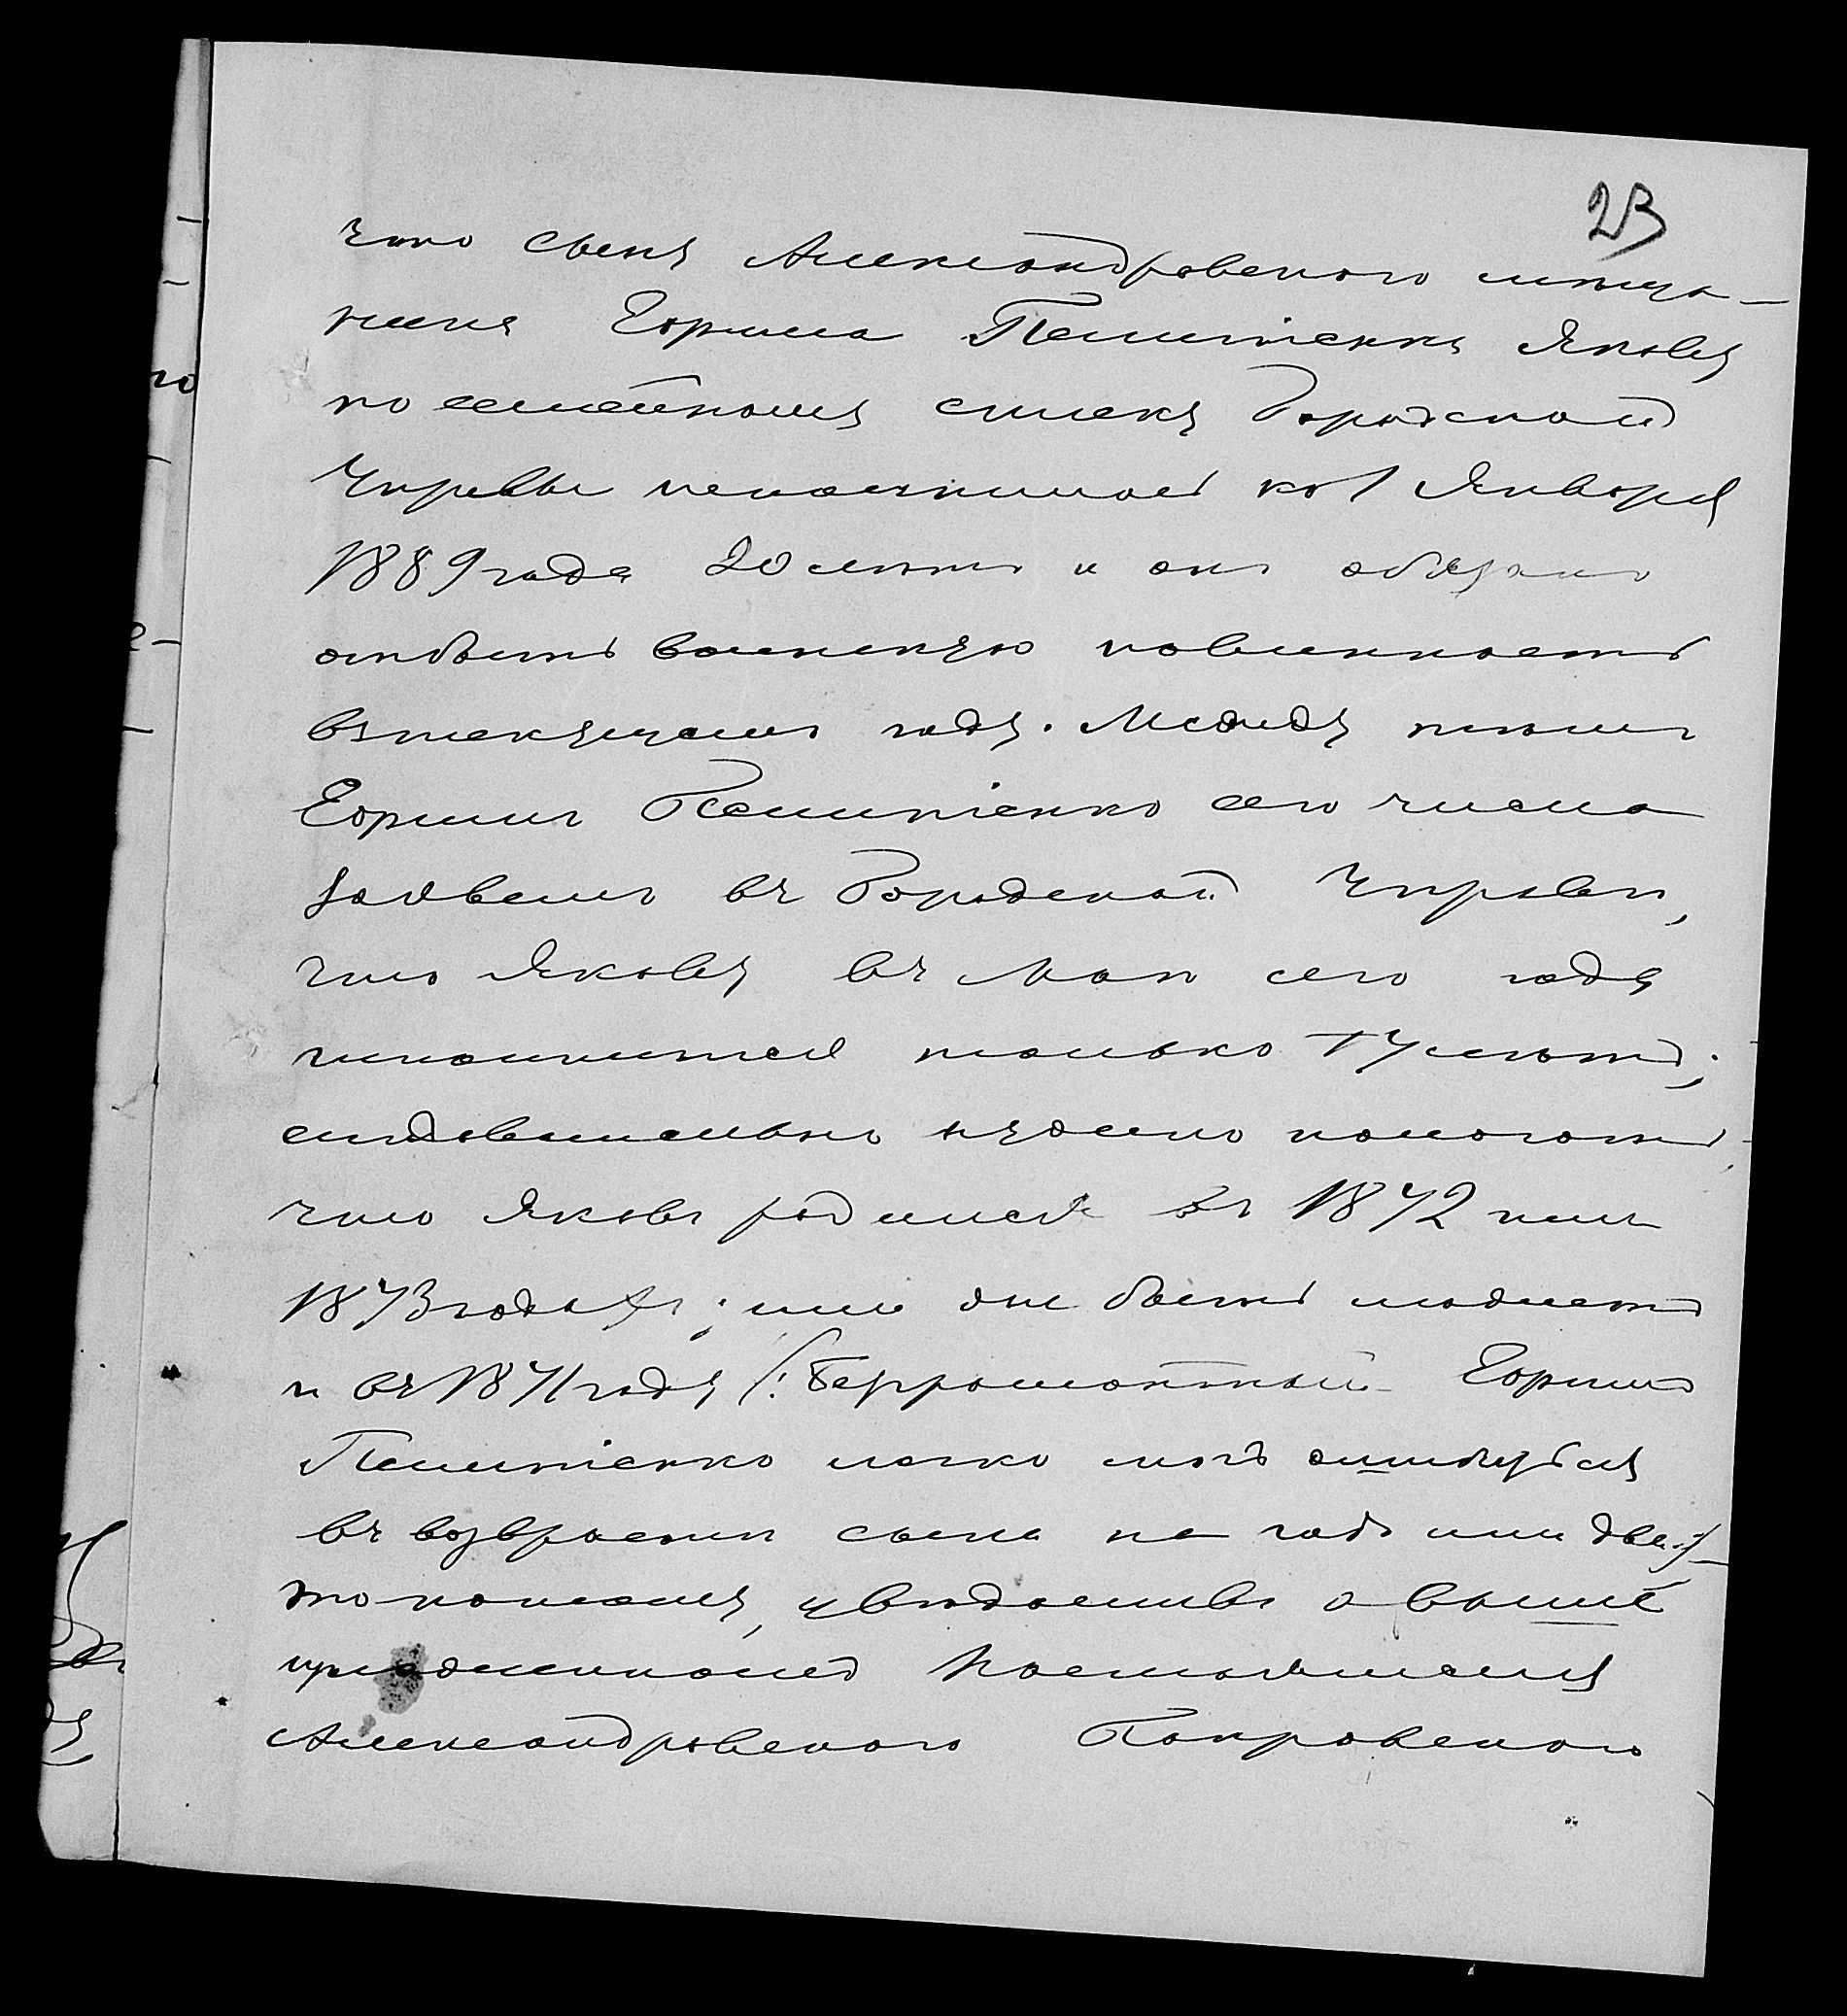 23
что сыну Александровского мѣща-
нина Ефима Пелипенка Якову
по семейному списку Городской
Управы исполнилось къ 1 Января
1889 года 20 лѣтъ и онъ обязанъ
отбыть воинскую повинность
въ текущемъ году. Между тѣмъ
Ефимъ Пелипенко сего числа
заявилъ въ Городской Управѣ,
что Якову въ Маѣ сего года
исполнится только 17 лѣтъ;
слѣдовательно нужно полагать
что Яковъ родился въ 1872 или
1873 годахъ; или же быть можетъ
и въ 1871 году /: безграмотный Ефимъ
Пелипенко легко могъ ошибиться
въ возврастѣ сына на годъ или два :/-
то поліція, увѣдомивъ о выше
изложенномъ Настоятеля
Александровского Покровского